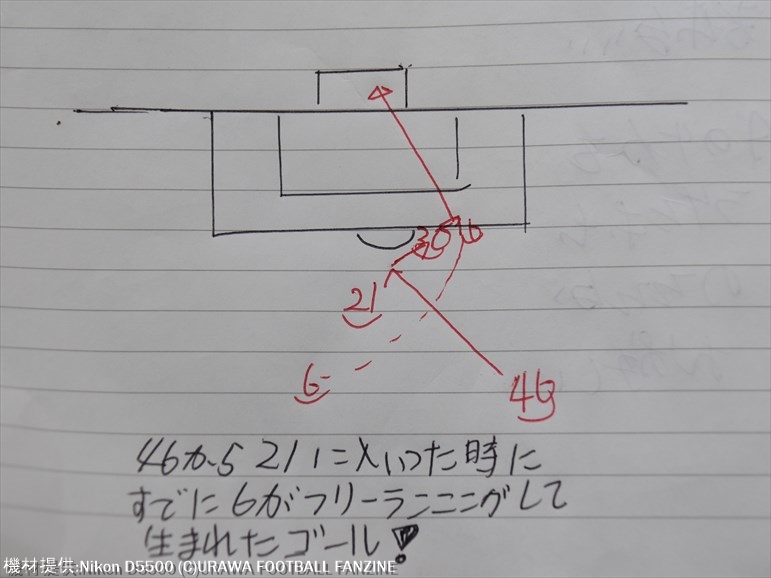 30
6
21
6
46
46から21に入った時に
すでに6がフリーランニングして
生まれたゴール!
機材提供:Nikon D5500 (C)URAWA FOOTBALL FANZINE